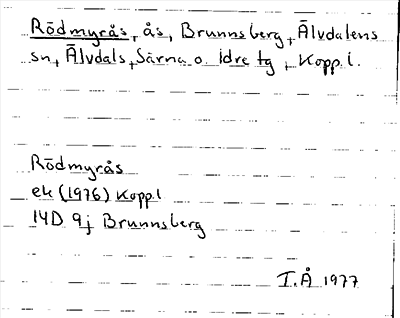 Rödmyrås, ås, Brunnsberg, Älvdalens
sn, Älvdals, Särna o. Idre tg, Kopp. l.
Rödmyrås
ek (1976) Kopp l
14D 9j Brunnsberg
I.Å 1977